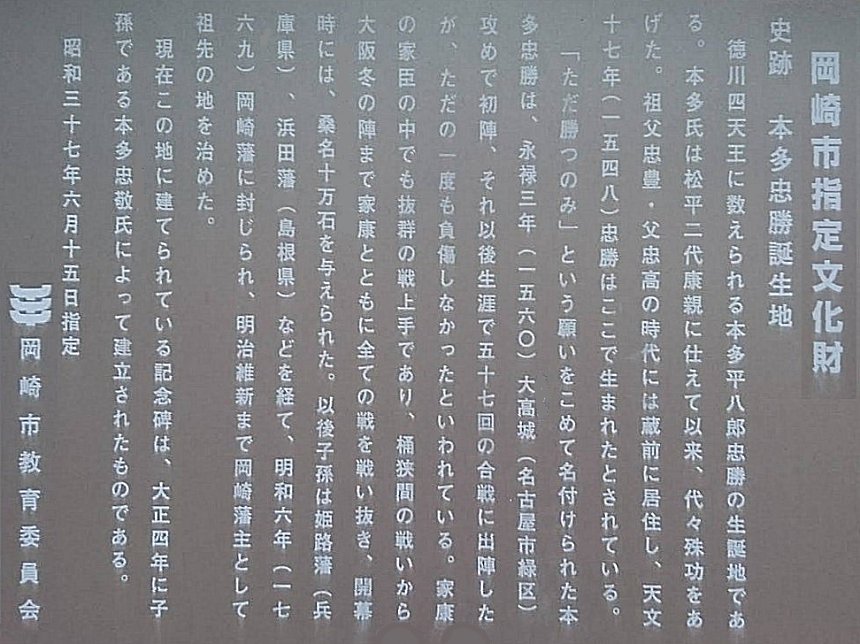 岡崎市指定文化財
史跡　本多忠勝誕生地
徳川四天王に数えられる本多平八郎忠勝の生誕地であ
る。本多氏は松平二代康親に仕えて以来、代々殊功をあ
げた。祖父忠豊・父忠高の時代には蔵前に居住し、天文
十七年(一五四八)忠勝はここで生まれたとされている。
「ただ勝つのみ」という願いをこめて名付けられた本
多忠勝は、永禄三年（一五六〇）大高城（名古屋市緑区）
攻めで初陣、それ以後生涯で五十七回の合戦に出陣した
が、ただの一度も負傷しなかったといわれている。家康
の家臣の中でも抜群の戦上手であり、桶狭間の戦いから
大阪冬の陣まで家康とともに全ての戦を戦い抜き、開幕
時には、桑名十万石を与えられた。以後子孫は姫路藩（兵
庫県）、浜田藩（島根県）などを経て、明和六年（一七
六九）岡崎藩に封じられ、明治維新まで岡崎藩主として
祖先の地を治めた。
現在この地に建てられている記念碑は、大正四年に子
孫である本多忠敬氏によって建立されたものである。
昭和三十七年六月十五日指定
岡崎市教育委員会